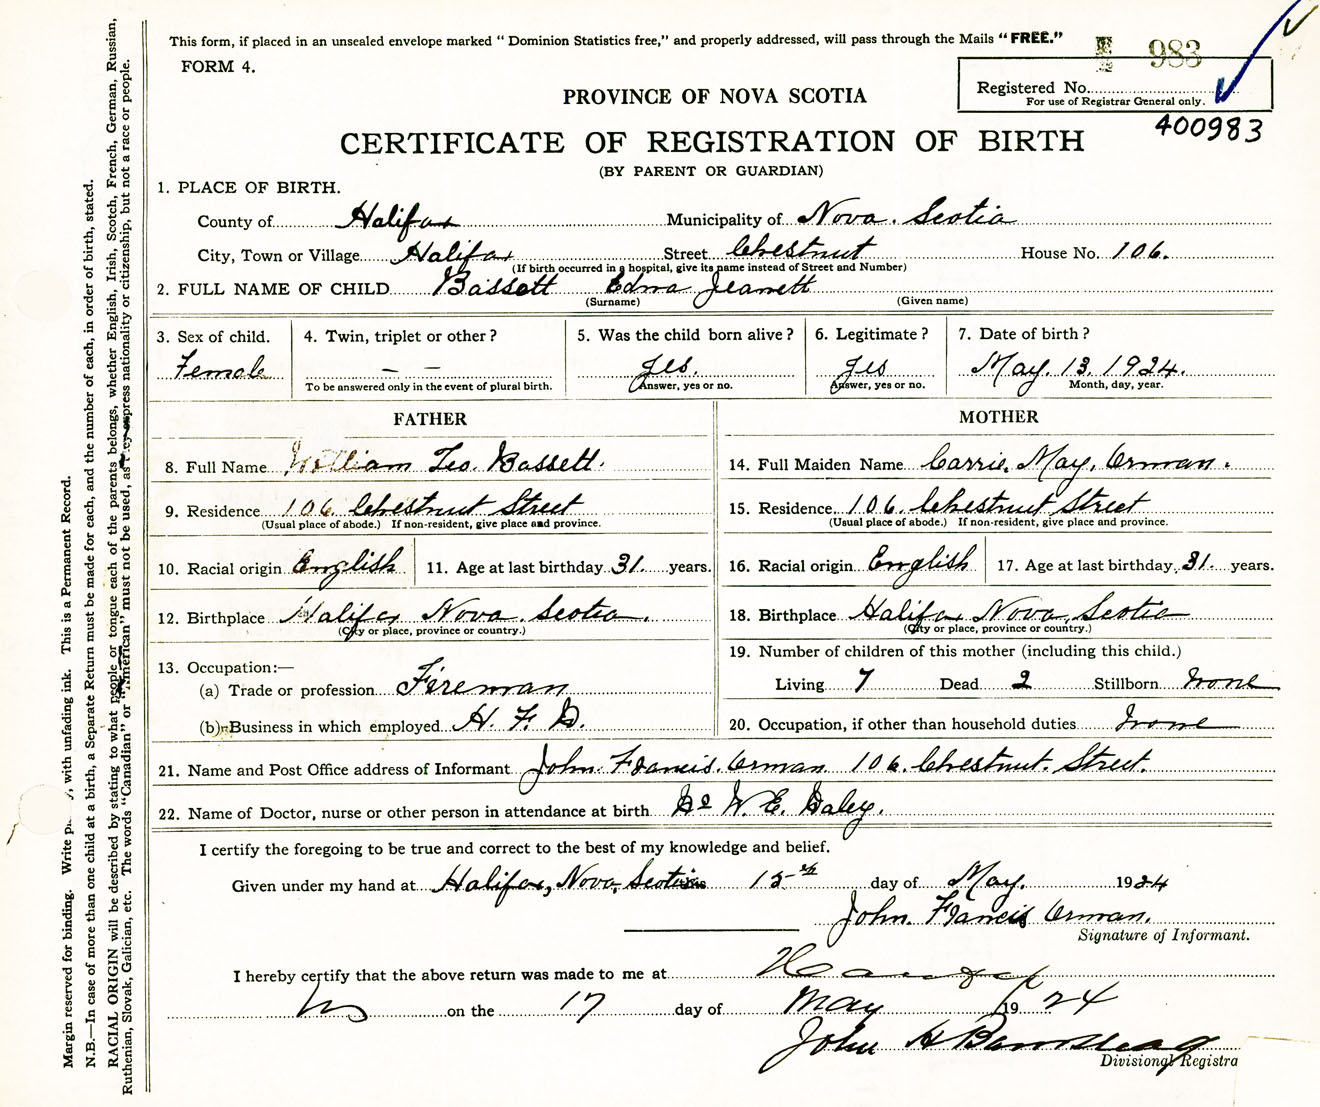 This form, if placed in an unsealed envelope marked “Dominion Statistics free,” and properly addressed, will pass through the Mails “FREE.”
FORM 4.
983
Registered No.
For use of Registrar General only.
400983
PROVINCE OF NOVA SCOTIA
CERTIFICATE OF REGISTRATION OF BIRTH
(BY PARENT OR GUARDIAN)
1. PLACE OF BIRTH.
County of Halifax Municipality of Nova Scotia
City, Town or Village Halifax Street Chestnut House No. 106.
(If birth occurred in a hospital, give its name instead of Street and Number)
2. FULL NAME OF CHILD Bassett Edna Jeanett
(Surname) (Given name)
3. Sex of child. 4. Twin, triplet or other? 5. Was the child born alive? 6. Legitimate? 7. Date of birth?
Female — — Yes. Yes May. 13 1924.
To be answered only in the event of plural birth. Answer, yes or no. Answer, yes or no. Month, day, year.
FATHER MOTHER
8. Full Name William Geo. Bassett. 14. Full Maiden Name Carrie. May. Orman.
9. Residence 106 Chestnut Street 15. Residence. 106. Chestnut Street
(Usual place of abode.) If non-resident, give place and province. (Usual place of abode.) If non-resident, give place and province.
10. Racial origin English 11. Age at last birthday 31. years. 16. Racial origin English 17. Age at last birthday 31. years.
12. Birthplace Halifax Nova Scotia. 18. Birthplace Halifax Nova Scotia
(City or place, province or country.) (City or place, province or country.)
13. Occupation:— 19. Number of children of this mother (including this child.)
(a) Trade or profession Fireman Living 7 Dead 2 Stillborn None
(b) Business in which employed H. F. D. 20. Occupation, if other than household duties None
21. Name and Post Office address of Informant John Francis. Orman 106. Chestnut. Street.
22. Name of Doctor, nurse or other person in attendance at birth Dr W. E. Daley.
I certify the foregoing to be true and correct to the best of my knowledge and belief.
Given under my hand at Halifax, Nova Scotia 15th day of May. 1924
John Francis Orman.
Signature of Informant.
I hereby certify that the above return was made to me at Halifax
NS on the 17 day of May 1924
John H
Divisional Registra
Margin reserved for binding. Write with unfading ink. This is a Permanent Record.
N.B.—In case of more than one child at a birth, a Separate Return must be made for each, and the number of each, in order of birth, stated.
RACIAL ORIGIN will be described by stating to what people or tongue each of the parents belongs, whether English, Irish, Scotch, French, German, Russian,
Ruthenian, Slovak, Galician, etc. The words “Canadian” or “American” must not be used, as they express nationality or citizenship, but not a race or people.